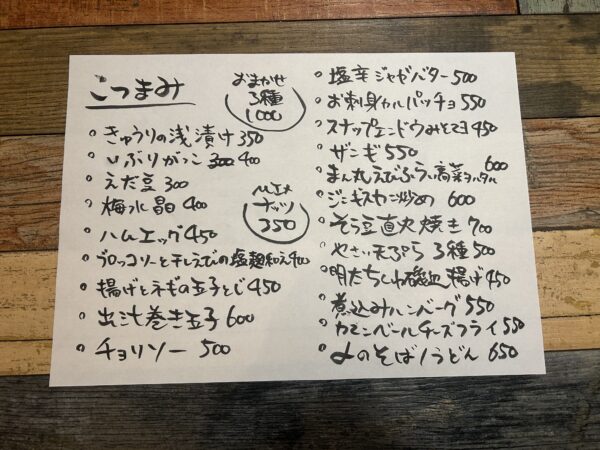 こつまみ
おまかせ
3種
1,000
・きゅうりの浅漬け 350
・いぶりがっこ 300 400
・えだ豆 300
・梅水晶 400
・ハムエッグ 450
・ブロッコリーと干しえびの塩麹和え 400
・揚げとネギの玉子とじ 450
・出汁巻き玉子 600
・チョリソー 500
MIX
ナッツ
350
・塩辛ジャガバター 500
・お刺身カルパッチョ 550
・スナップエンドウみそマヨ 450
・ザンギ 550
・まん丸えびぷらい高菜タルタル 600
・ジンギスカン炒め 600
・そら豆直火焼き 700
・やさい天ぷら 3種 500
・明太ちくわ磯辺揚げ 450
・煮込みハンバーグ 550
・カマンベールチーズフライ 550
・〆のそば/うどん 650